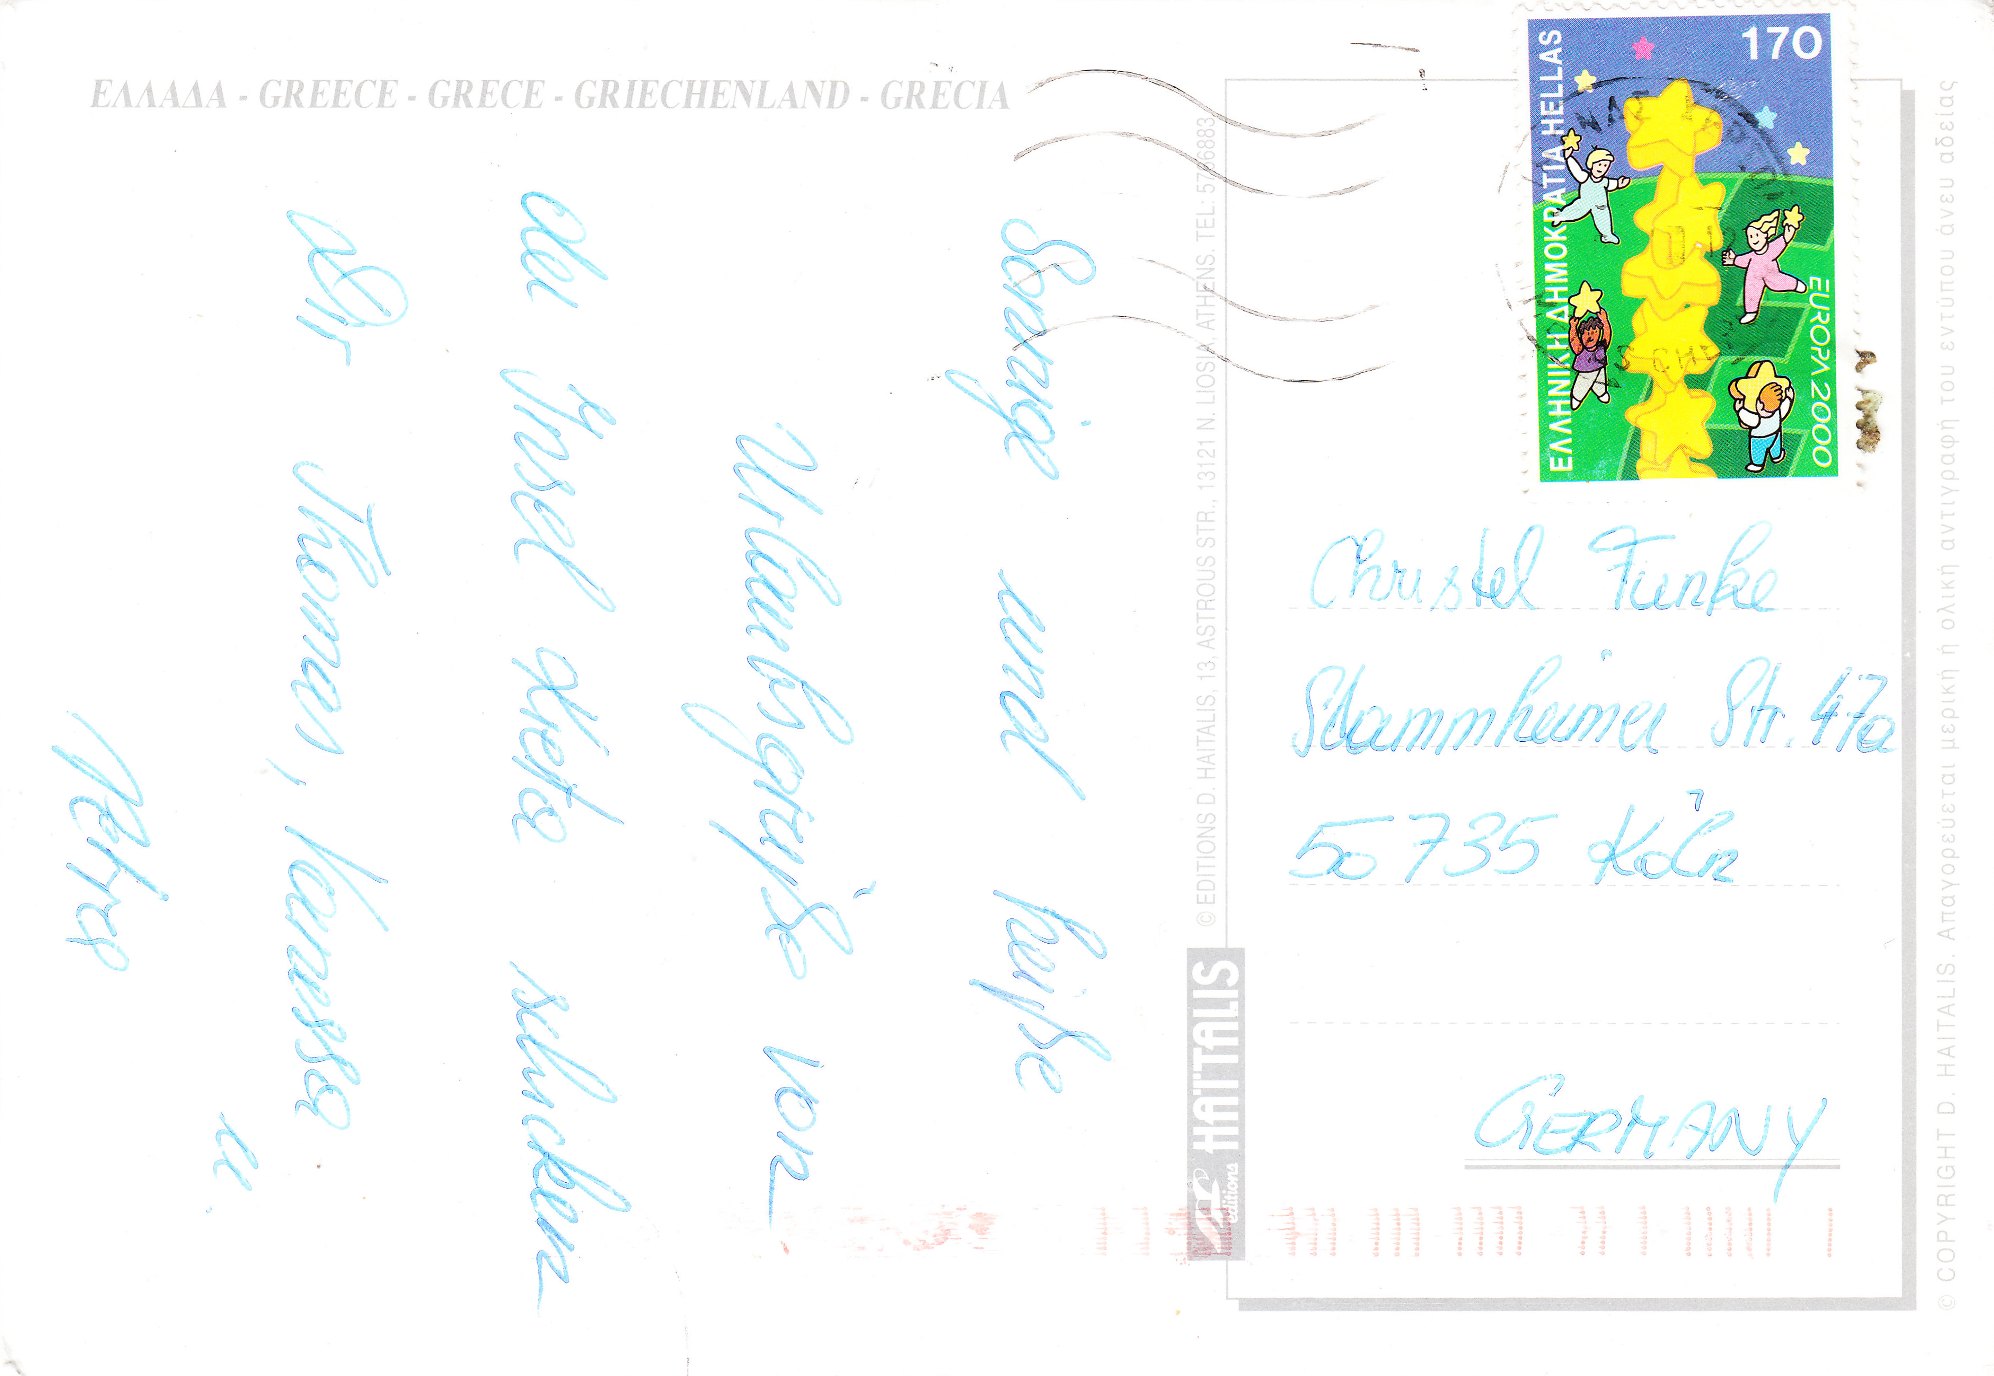 ΕΛΛΑΔΑ - GREECE - GRECE - GRIECHENLAND - GRECIA
Sonnige und heiße
Urlaubsgrüße von
der Insel Kreta schicken
Dir Thomas, Vanessa
u.
Petra
© EDITIONS D. HAITALIS, 13, ASTROUS STR., 13121 N. LIOSIA ATHENS. TEL: 5736883
HAÏTALIS
editions
170
ΕΛΛΗΝΙΚΗ ΔΗΜΟΚΡΑΤΙΑ HELLAS
EUROPA 2000
Christel Funke
Stammheimer Str. 47a
50735 Köln
GERMANY
© COPYRIGHT D. HAITALIS. Απαγορεύεται μερική ή ολική αντιγραφή του εντύπου άνευ αδείας